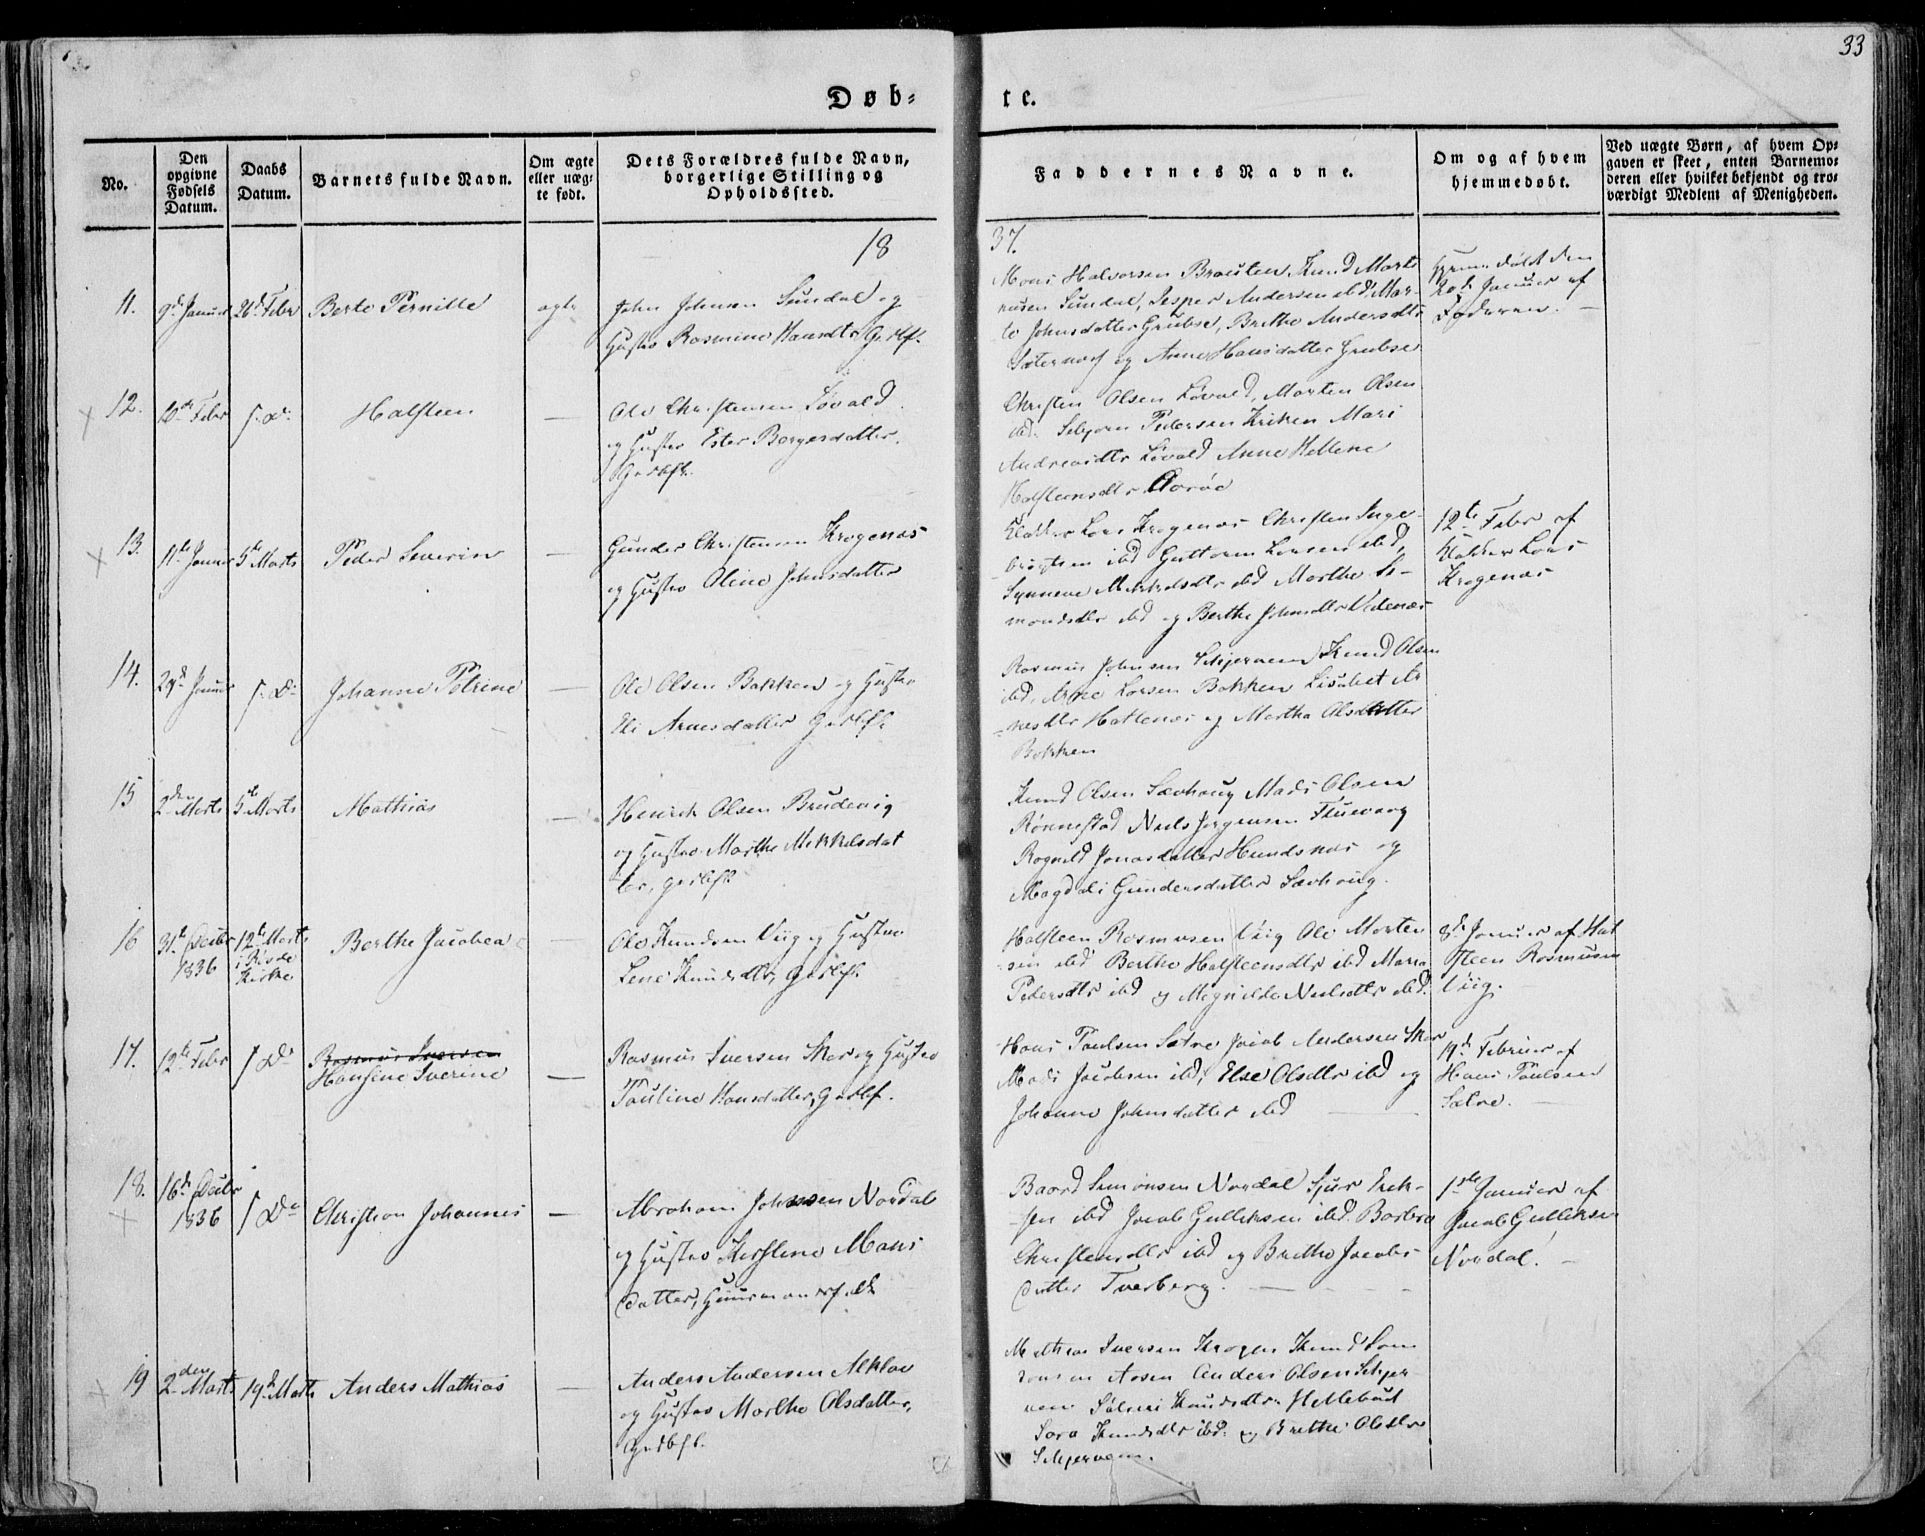 33
Døb=
te.
No.
Den opgivne Fødsels Datum.
Daabs Datum.
Barnets fulde Navn.
Om ægte eller uæg= te født.
Dets Forældres fulde Navn, borgerlige Stilling og Opholdssted.
Faddernes Navne.
Om og af hvem hjemmedøbt.
Ved uægte Børn, af hvem Op= gaven er skeet, enten Barnemo= deren eller hvilket bekjendt og tro= værdigt Medlem af Menigheden.
18
37.
11.
9d Januar
26d Febr
Berte Pernille
ægte
John Johnsen Sundal og
Hustro Rasmine Hansdtr Grdbf.
Mons Halvorsen Brausten Knud Mart
Sundal, Jesper Andersen ibid, Mar-
te Johnsdatter Grubse, Brithe Andersdtr
og Anne Hansdatter Grubse
Hjemmedøbt den
20de Januar af
Faderen.
12.
10de Febr
s. D.
Halsteen
—
Ole Christensen Løvold
og Hustro Ester Børgesdatter.
Grdbfk.
Christen Olsen Løvold, Morten Olsen
ibd. Sebjørn Pedersen Kriken Mari
Andreasdtr Løvold Anne Hellene
Halsteensdtr Aarøe
13.
11te Januar
5te Marts
Peder Severin
—
Gunder Christensen Krogenæs
og Hustro Oline Johnsdatter
Klokker Lars Krogenæs Christen Inge-
brigtsen ibd Guttorm Larsen ibd,
Synneve Mikkelsdtr ibd Marthe A-
mondsdtr ibd og Berthe Johnsdtr Vedenæs
12te Febr af
Klokker Lars
Krogenæs
14.
29d Januar
s. D.
Johanne Petrine
—
Ole Olsen Bakken og Hustro
Eli Arnesdatter Grdbfk
Rasmus Johnsen Schjerven Knud Olsen
ibd, Arne Larsen Bakken Lisabet Ar-
nesdtr Hatlenæs og Martha Olsdatter
Bakken
15
2den Marts
5te Marts
Mathias
—
Henrik Olsen Brudevig
og Hustro Marthe Mikkelsdat
ter, grdbfk
Knud Olsen Sævhoug Mads Olsen
Rønnestad Niels Jørgensen Fluevaag
Rognild Jonasdatter Hundsnæs og
Magdali Gundersdatter Sævhoug.
16
31te Decbr
1836
12te Marts
i Kirke
Berthe Jacobea
—
Ole Knudsen Viig og Hustro
Lene Knudsdtr, grdbfk
Halsteen Rasmusen Viig Ole Morten
sen ibd Berthe Halsteensdtr ibd Maria
Pedersdtr ibd og Magnilda Nielsdtr ibd.
8de Januar af Hal
steen Rasmusen
Viig.
17.
12te Febr
s D.
Rasmus Iversen
Hansine Iverine
—
Rasmus Iversen Skar og Hustro
Pauline Hansdatter, grdbf.
Hans Paulsen Sætre Jacob Andersen Skar
Mads Jacobsen ibd, Else Olsdtr ibd og
Johanne Johnsdatter ibd
19d Februar af
Hans Paulsen
Sætre.
18.
16d Decbr
1836
s D.
Christian Johannes
—
Abraham Johnsen Nordal
og Hustro Kirstene Mons
datter, Huusmandsfolk
Baard Simonsen Nordal Sjur Erik-
sen ibd Jacob Gulliksen ibd. Barbra
Christensdtr ibd og Brithe Jacobs
datter Tverberg.
1ste Januar af
Jacob Gulliksen
Nordal.
19
2den Marts
19d Marts
Anders Mathias
—
Anders Andersen Alklov
og Hustro Marthe Olsdatter,
Grdbfk.
Mathias Iversen Krogen Knud
Aasen Anders Olsen Schjer-
ven Sølvei Knudsdtr Hellebust
Sara Knudsdtr ibd. og Brithe Olsdtr
Schjerven.